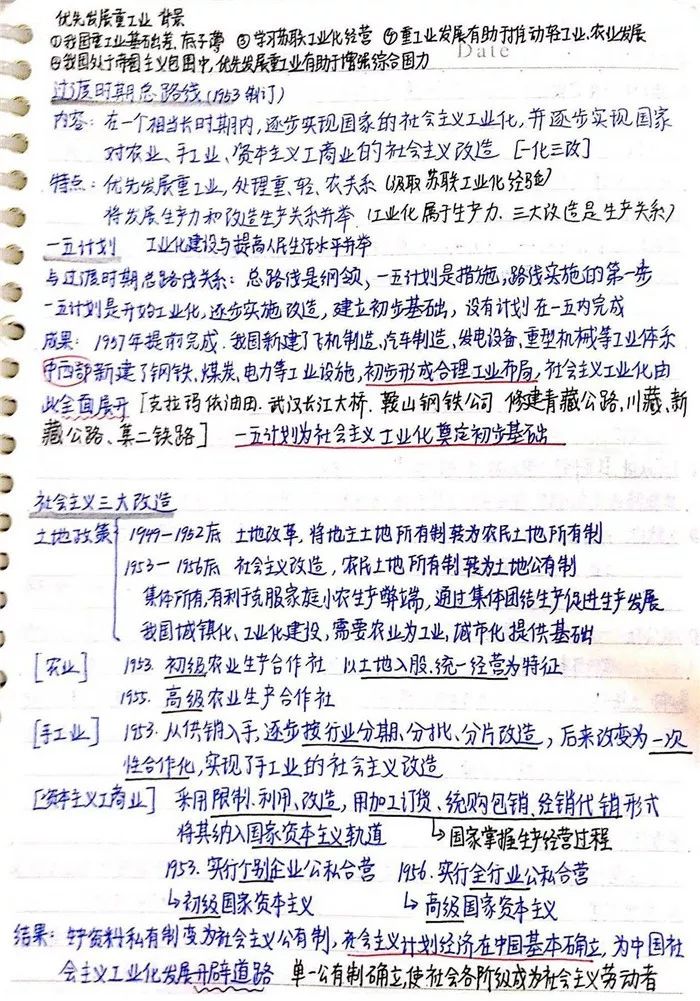 优先发展重工业 背景
①我国重工业基础差、底子薄 ②学习苏联工业化经营 ③重工业发展有助于推动轻工业、农业发展
Date
④我国处于帝国主义包围中,优先发展重工业有助于增强综合国力
过渡时期总路线(1953制订)
内容:在一个相当长时期内,逐步实现国家的社会主义工业化,并逐步实现国家
对农业、手工业、资本主义工商业的社会主义改造 [一化三改]
特点:优先发展重工业,处理重、轻、农关系(汲取苏联工业化经验)
将发展生产力和改造生产关系并举(工业化属于生产力.三大改造是生产关系)
一五计划 工业化建设与提高人民生活水平并举
与过渡时期总路线关系:总路线是纲领,一五计划是措施,路线实施的第一步
一五计划是开始工业化,逐步实施改造,建立初步基础,没有计划在一五内完成
成果:1957年提前完成.我国新建了飞机制造、汽车制造、发电设备、重型机械等工业体系
中西部新建了钢铁、煤炭、电力等工业设施,初步形成合理工业布局,社会主义工业化由
此全面展开[克拉玛依油田.武汉长江大桥.鞍山钢铁公司 修建青藏公路、川藏、新
藏公路、集二铁路] 一五计划为社会主义工业化奠定初步基础
社会主义三大改造
土地政策 1949—1952底 土地改革,将地主土地所有制转为农民土地所有制
1953—1956底 社会主义改造,农民土地所有制转为土地公有制
集体所有,有利于克服家庭小农生产弊端,通过集体团结生产促进生产发展
我国城镇化、工业化建设,需要农业为工业,城市化提供基础
[农业] 1953.初级农业生产合作社 以土地入股.统一经营为特征
1955.高级农业生产合作社
[手工业] 1953.从供销入手,逐步按行业分期、分批、分片改造,后来改变为一次
性合作化,实现了手工业的社会主义改造
[资本主义工商业] 采用限制.利用、改造,用加工订货、统购包销、经销代销形式
将其纳入国家资本主义轨道 ↳国家掌握生产经营过程
1953.实行个别企业公私合营 1956.实行全行业公私合营
↳初级国家资本主义 ↳高级国家资本主义
结果:生产资料私有制变为社会主义公有制,社会主义计划经济在中国基本确立,为中国社
会主义工业化发展开辟道路 单一公有制确立,使社会各阶级成为社会主义劳动者